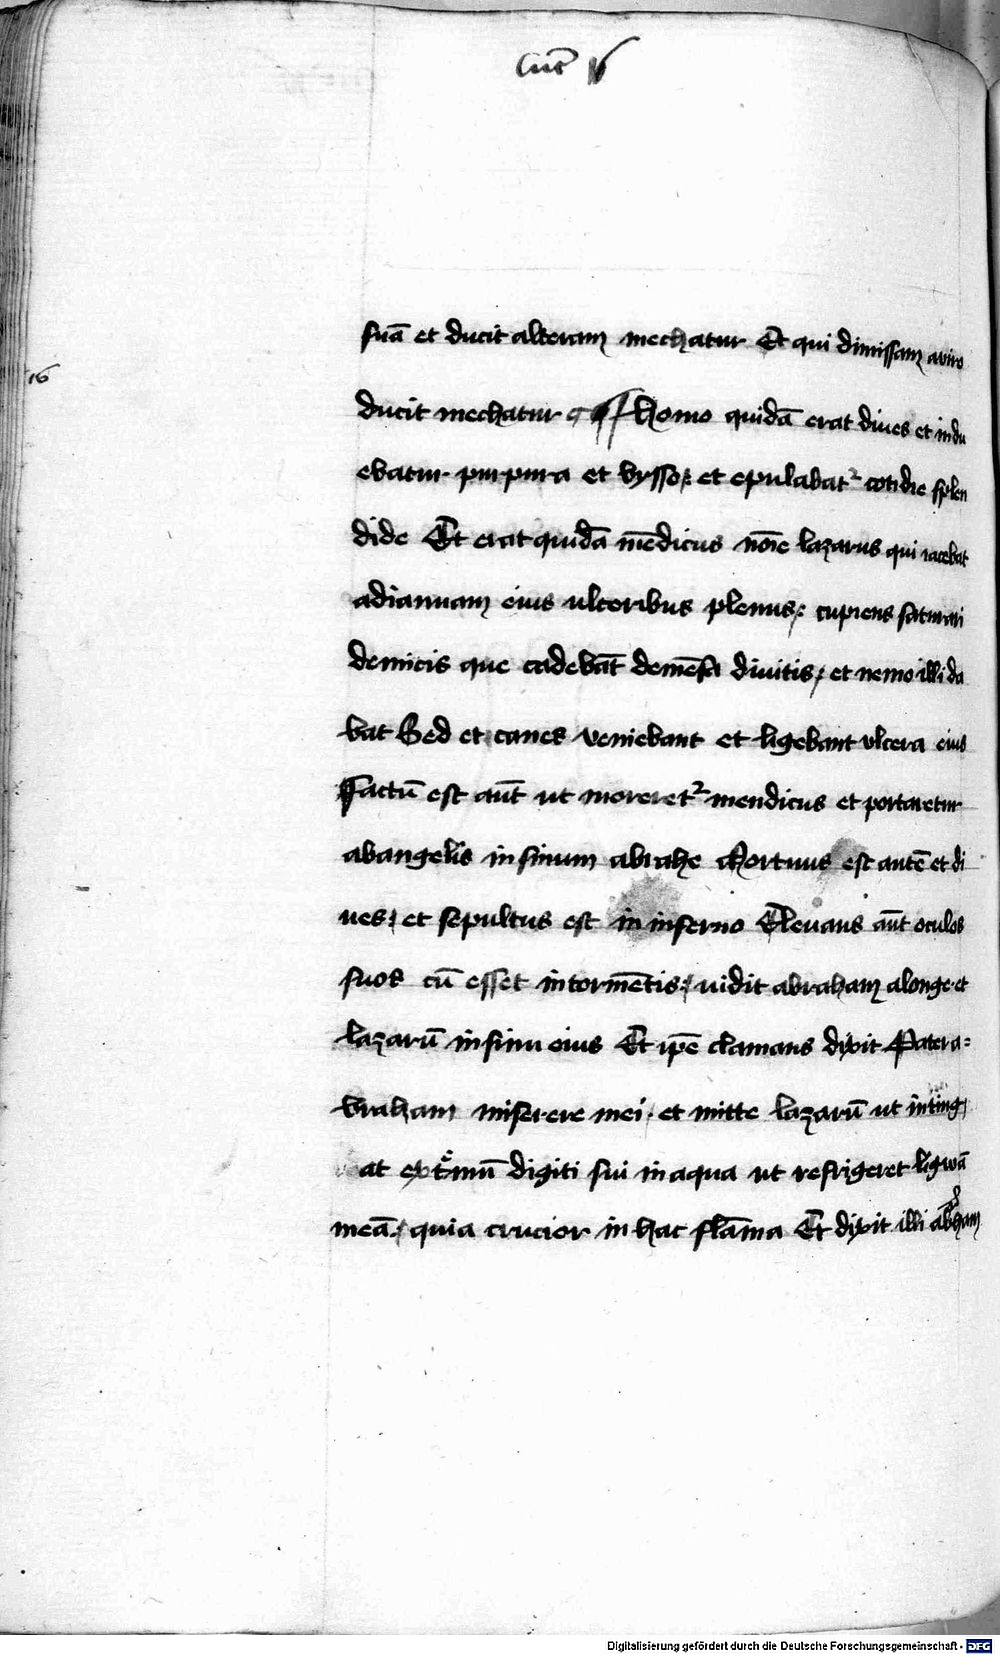 16
suā et ducit alteram mechatur Et qui dimissam aviro
ducit mechatur Homo quidā erat diues et indu
ebatur purpura et bysso; et epulabat᷑ cotidie splen
dide Et erat quidā mēdicus noīe lazarus qui iacebat
adianuam eius ulceribus plenus; cupiens saturari
demicis que cadebāt demēsa diuitis; et nemo illi da
bat Sed et canes veniebant et ligebant vlcera eius
Factū est aūt ut moreret᷑ mendicus et portaretur
abangelis in sinum abrahe Mortuus est autē et di
ues; et sepultus est in inferno Eleuans aūt oculos
suos cū esset intormētis; vidit abraham alonge et
lazarū in sinu eius Et ipē clamans dixit Pater a=
braham miserere mei. et mitte lazarū ut inting
at extmū digiti sui in aqua ut refrigeret ligwā
meā; quia crucior in hac flāma Et dixit illi abham
Digitalisierung gefördert durch die Deutsche Forschungsgemeinschaft - DFG